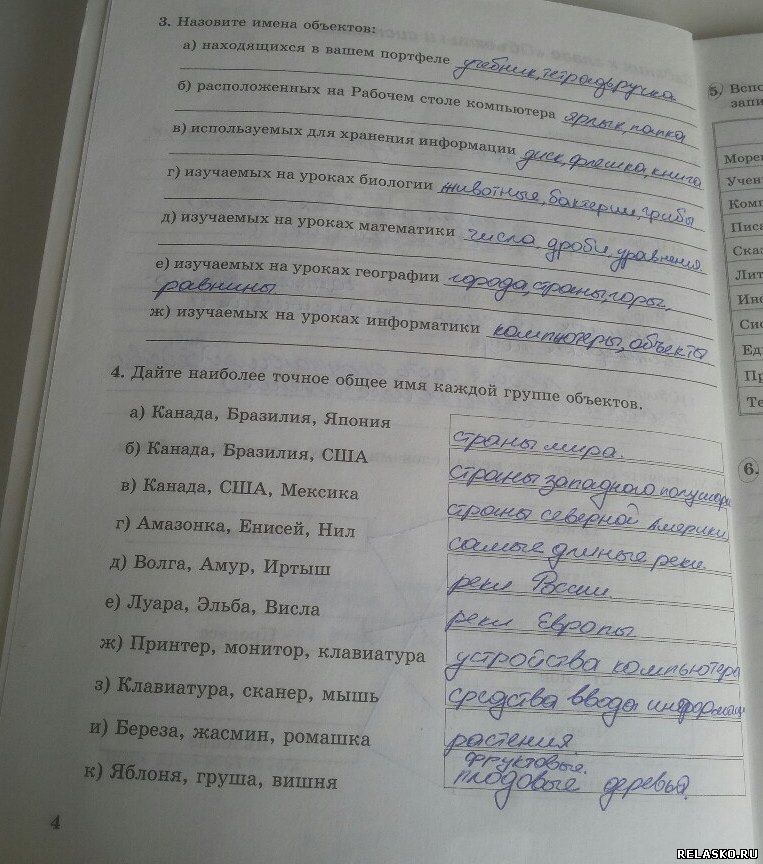 3. Назовите имена объектов:
а) находящихся в вашем портфеле учебник, тетрадь, ручка
б) расположенных на Рабочем столе компьютера ярлык, папка
в) используемых для хранения информации диск, флешка, книга
г) изучаемых на уроках биологии животные, бактерии, грибы
д) изучаемых на уроках математики числа, дроби, уравнения
е) изучаемых на уроках географии города, страны, горы,
равнины
ж) изучаемых на уроках информатики компьютеры, объекты
4. Дайте наиболее точное общее имя каждой группе объектов.
а) Канада, Бразилия, Япония страны мира.
б) Канада, Бразилия, США страны западного полушари
в) Канада, США, Мексика страны северной Америки
г) Амазонка, Енисей, Нил самые длиные реки
д) Волга, Амур, Иртыш реки России
е) Луара, Эльба, Висла реки Европы
ж) Принтер, монитор, клавиатура устройства компьютера
з) Клавиатура, сканер, мышь средства ввода информаци
и) Береза, жасмин, ромашка растения.
фруктовые.
к) Яблоня, груша, вишня плодовые деревья.
4
5. Вспо
запи
Море
Учен
Комп
Писа
Сказ
Лит
Ин
Сис
Ед
Пр
Те
6.
RELASKO.RU